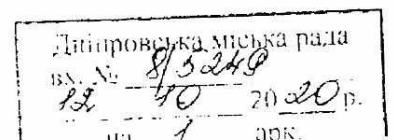 Дніпровська міська рада
вх. № 8/3249
12 10 2020 р.
на 1 арк.